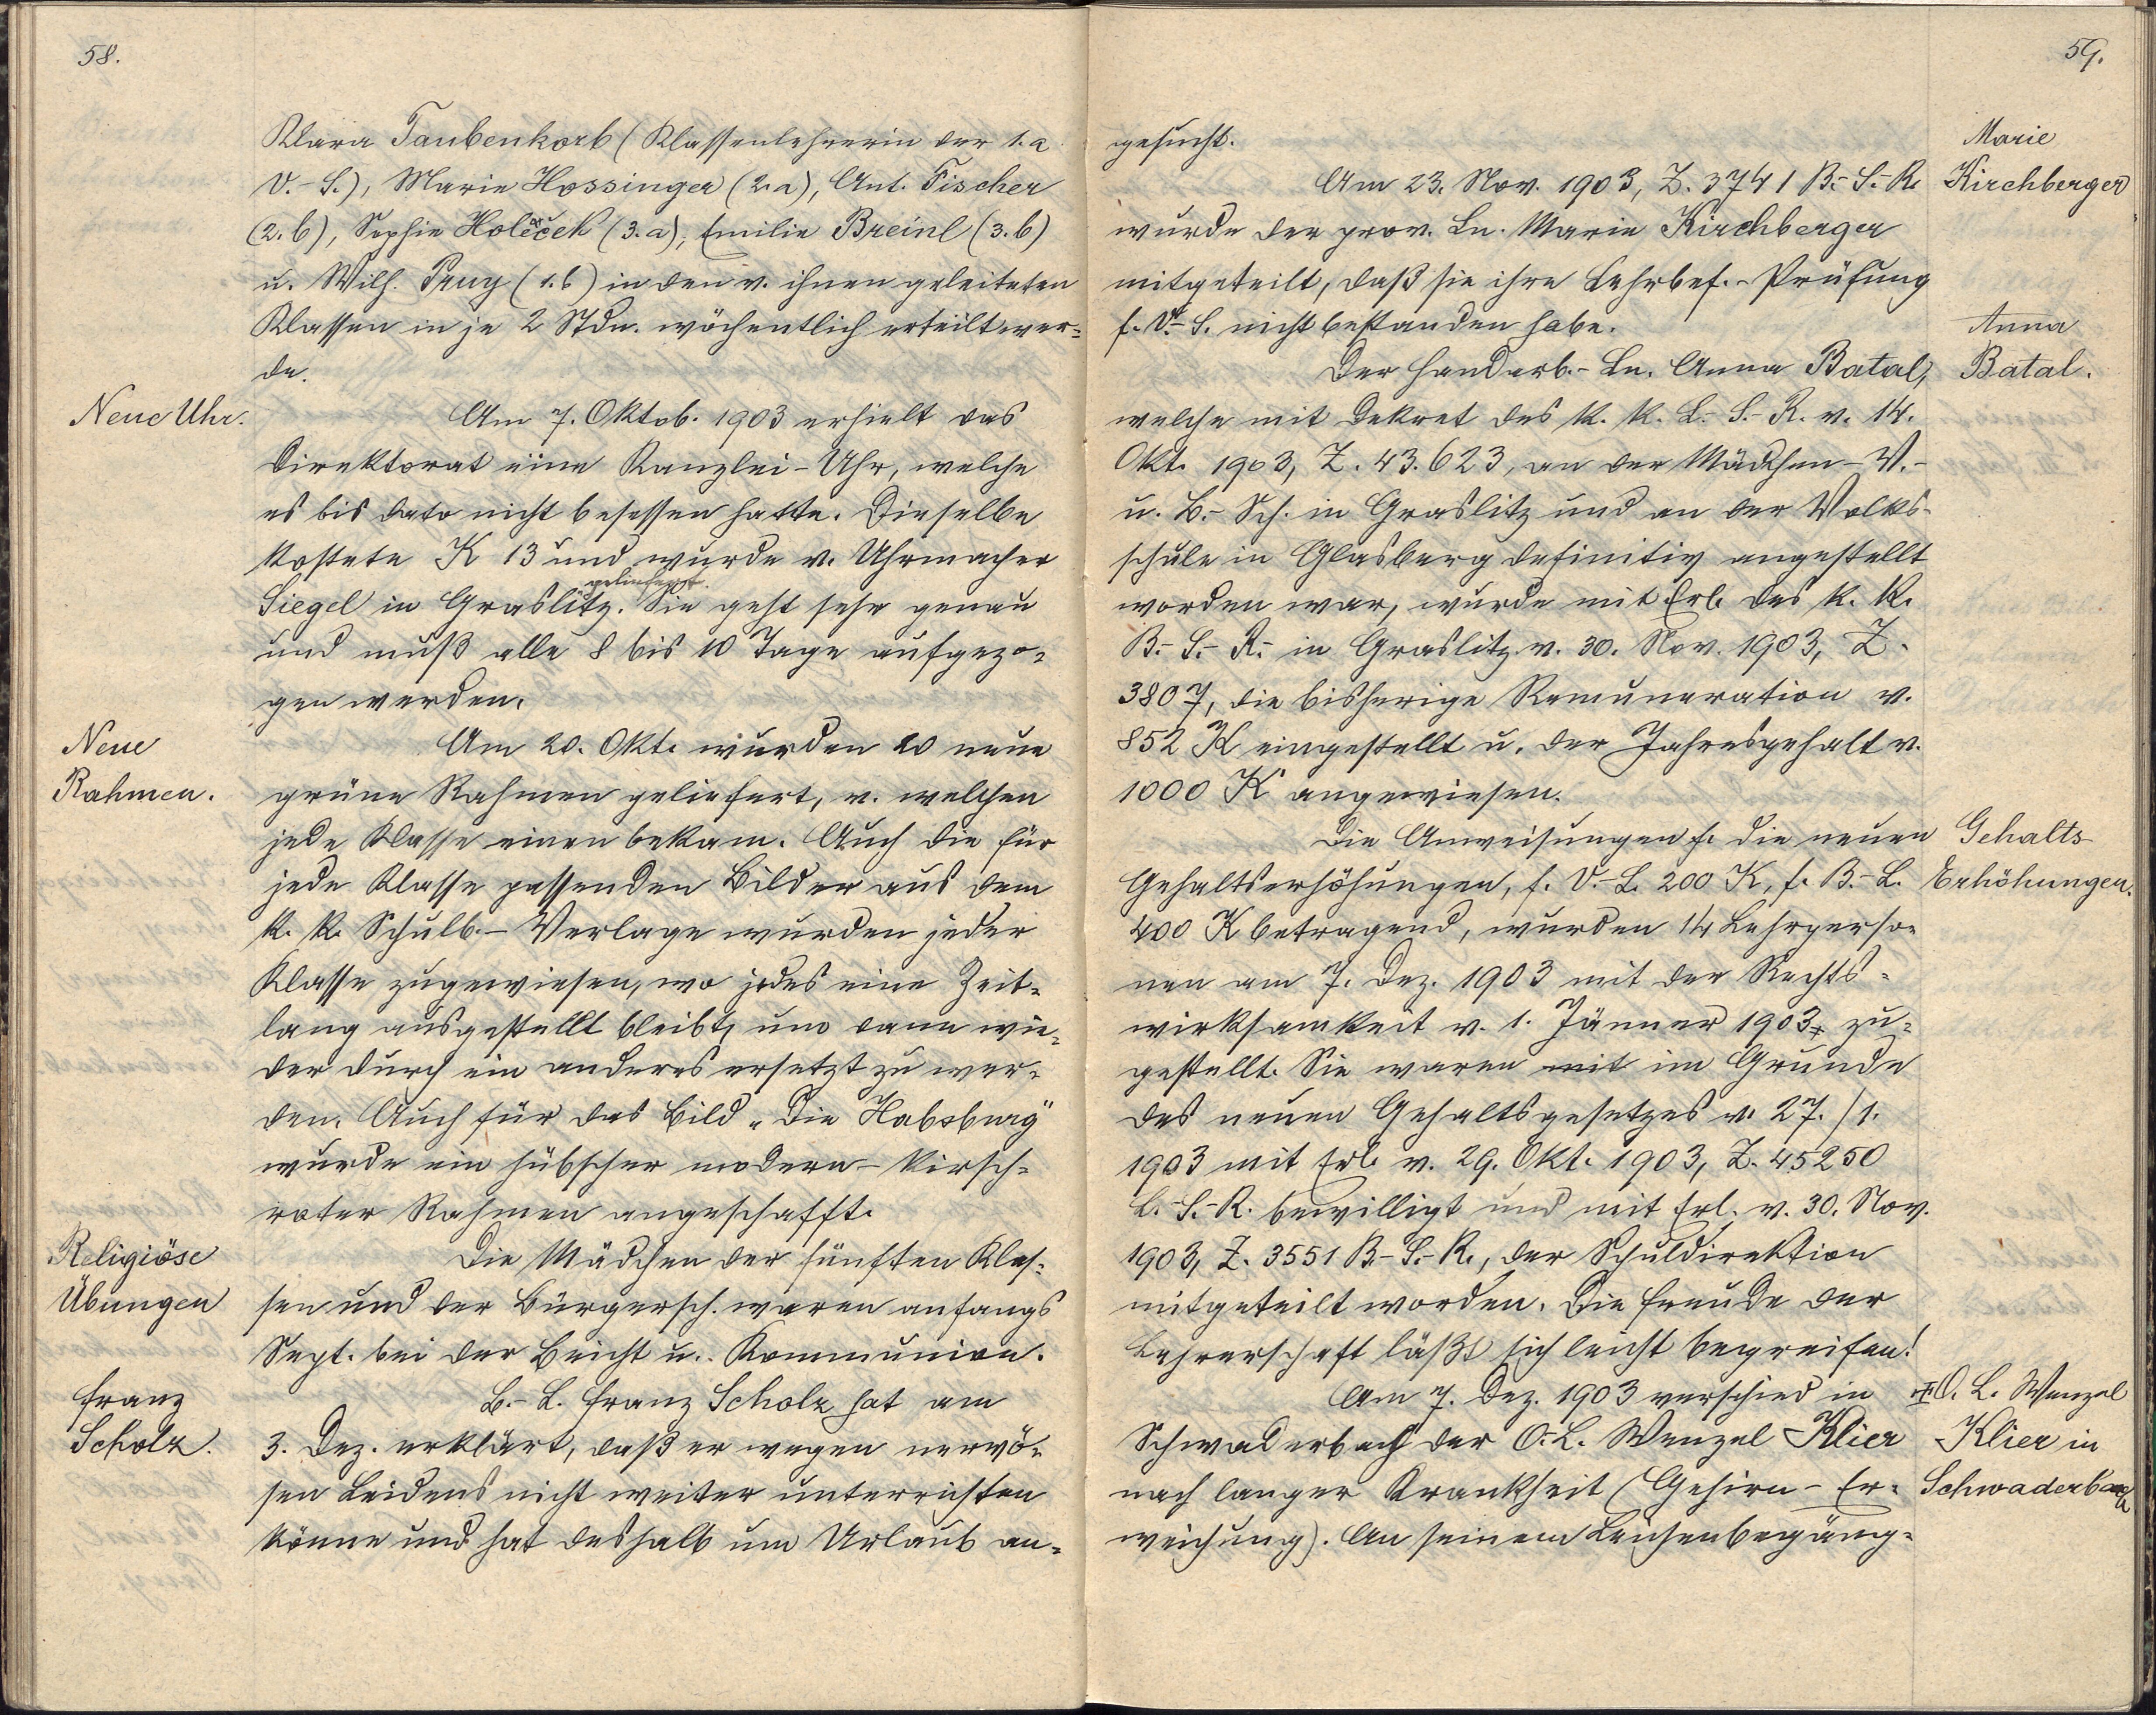 58.
Klara Taubenkorb (Klassenlehrerin der 1. a
V.-S.), Marie Hossinger (2. a), Ant. Fischer
(2. b), Sophie Holeček (3. a), Emilie Breinl (3. b)
u. Wilh. Pruy (1. b) in den v. ihnen geleiteten
Klassen in je 2 Stdn. wöchentlich erteilt wer=
de.
Neue Uhr.
Am 7. Oktob. 1903 erhielt das
Direktorat eine Kanzlei-Uhr, welche
es bis dato nicht besessen hatte. Dieselbe
kostete K 13 und wurde v. Uhrmacher
Siegel in Graslitz geliefert. Sie geht sehr genau
und muß alle 8 bis 10 Tage aufgezo=
gen werden.
Neue
Rahmen.
Am 20. Okt. wurden 20 neue
grüne Rahmen geliefert, v. welchen
jede Klasse einen bekam. Auch die für
jede Klasse passenden Bilder aus dem
k. k. Schulb.-Verlage wurden jeder
Klasse zugewiesen, wo jedes eine Zeit=
lang ausgestellt bleibt, um dann wie=
der durch ein anderes ersetzt zu wer=
den. Auch für das Bild "Die Habsburg"
wurde ein hübscher modern-kirsch=
roter Rahmen angeschafft.
Religiöse
Übungen
Die Mädchen der fünften Klas=
sen und der Bürgersch. waren anfangs
Sept. bei der Beicht u. Kommunion.
Franz
Scholz.
B.-L. Franz Scholz hat am
3. Dez. erklärt, daß er wegen nervö=
sen Leidens nicht weiter unterrichten
könne und hat deshalb um Urlaub an=
59.
gesucht.
Marie
Kirchberger
Am 23. Nov. 1903, Z. 3741 B.-S.-R.
wurde der prov. Ln. Marie Kirchberger
mitgeteilt, daß sie ihre Lehrbef.-Prüfung
f. V.-S. nicht bestanden habe.
Anna
Batal.
Der Handarb.-Ln. Anna Batal,
welche mit Dekret des k. k. L.-S.-R. v. 14.
Okt. 1903, Z. 43.623, an der Mädchen-V.-
u. B.-Sch. in Graslitz und an der Volks-
schule in Glasberg definitiv angestellt
worden war, wurde mit Erl. des k. k.
B.-S.-R. in Graslitz v. 30. Nov. 1903, Z.
3807, die bisherige Remuneration v.
852 K eingestellt u. der Jahresgehalt v.
1000 K angewiesen.
Gehalts-
Erhöhungen.
Die Anweisungen f. die neuen
Gehaltserhöhungen, f. V.-L. 200 K, f. B.-L.
400 K betragend, wurden 14 Lehrperso=
nen am 7. Dez. 1903 mit der Rechts=
wirksamkeit v. 1. Jänner 1903 zu=
gestellt. Sie waren mit im Grunde
des neuen Gehaltsgesetzes v. 27./1.
1903 mit Erl. v. 29. Okt. 1903, Z. 45250
L.-S.-R. bewilligt und mit Erl. v. 30. Nov.
1903, Z. 3551 B.-S.-R., der Schuldirektion
mitgeteilt worden. Die Freude der
Lehrerschaft läßt sich leicht begreifen!
O. L. Wenzel
Klier in
Schwaderbach
Am 7. Dez. 1903 verschied in
Schwaderbach der O.-L. Wenzel Klier
nach langer Krankheit (Gehirn-Er=
weichung). An seinem Leichenbegäng=